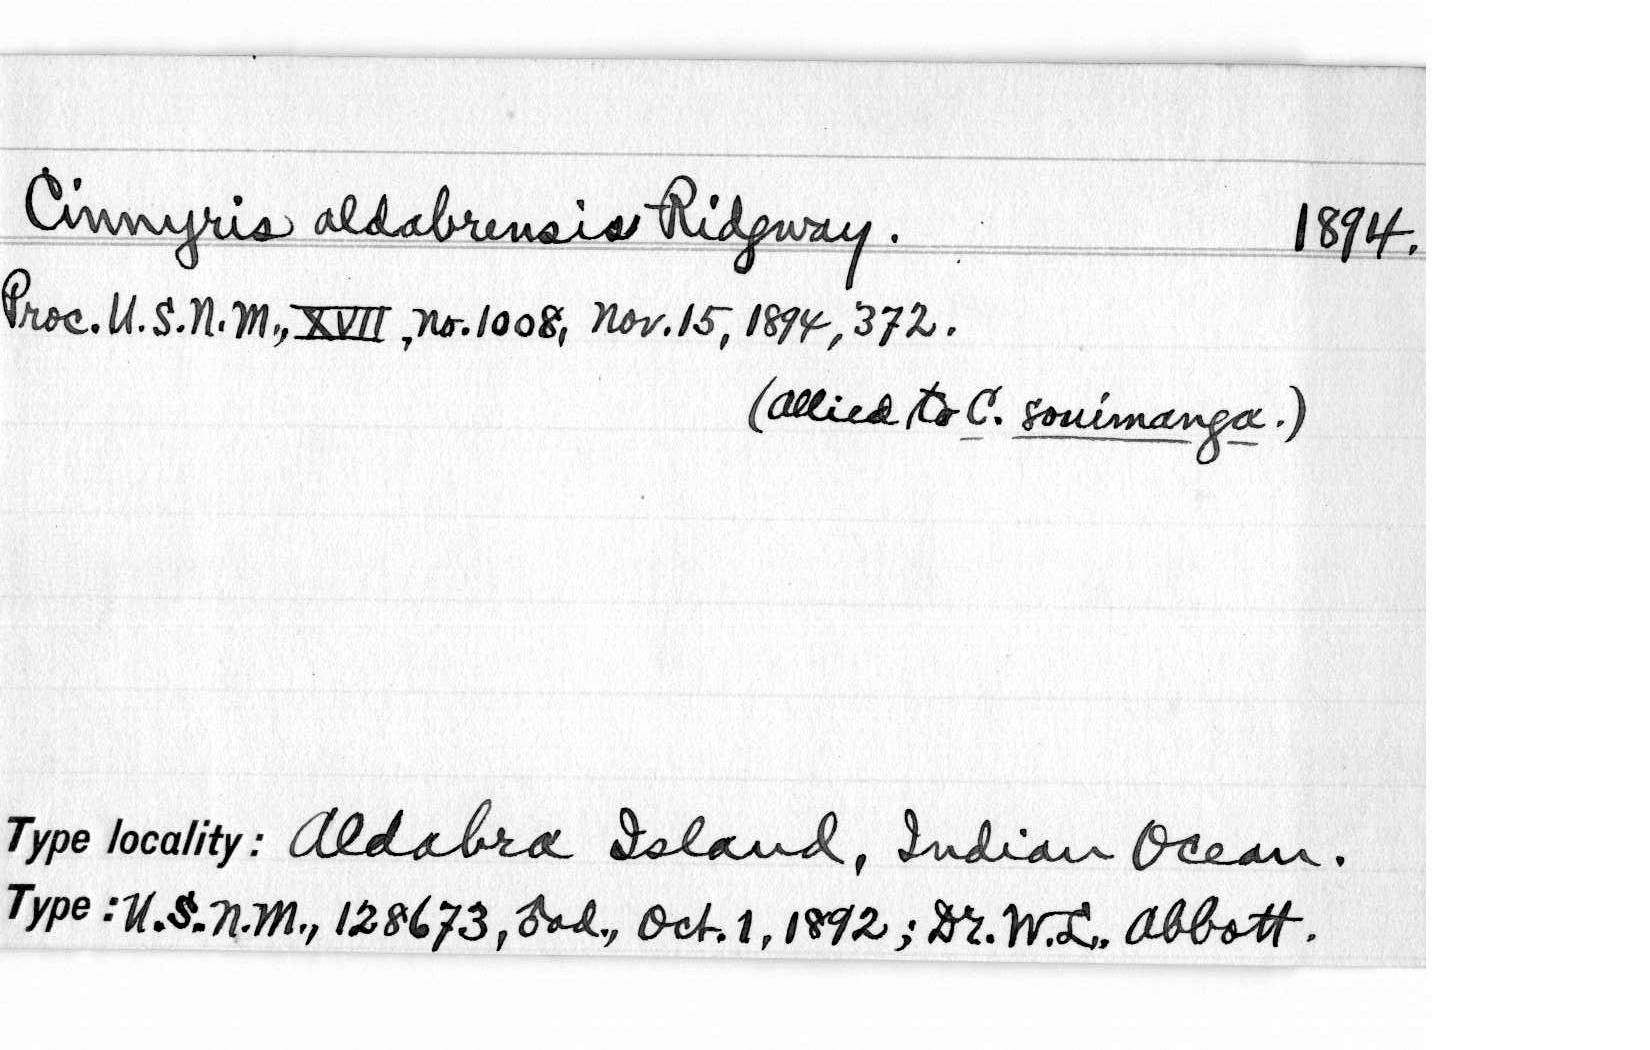 Cinnyris aldabrensis Ridgway. 1894.
Proc. U.S.N.M., XVII, no. 1008, Nov. 15, 1894, 372.
(allied to C. souimanga.)
Type locality: Aldabra Island, Indian Ocean.
Type: U.S.N.M., 128673, ♂ad., Oct. 1, 1892; Dr. W.L. Abbott.